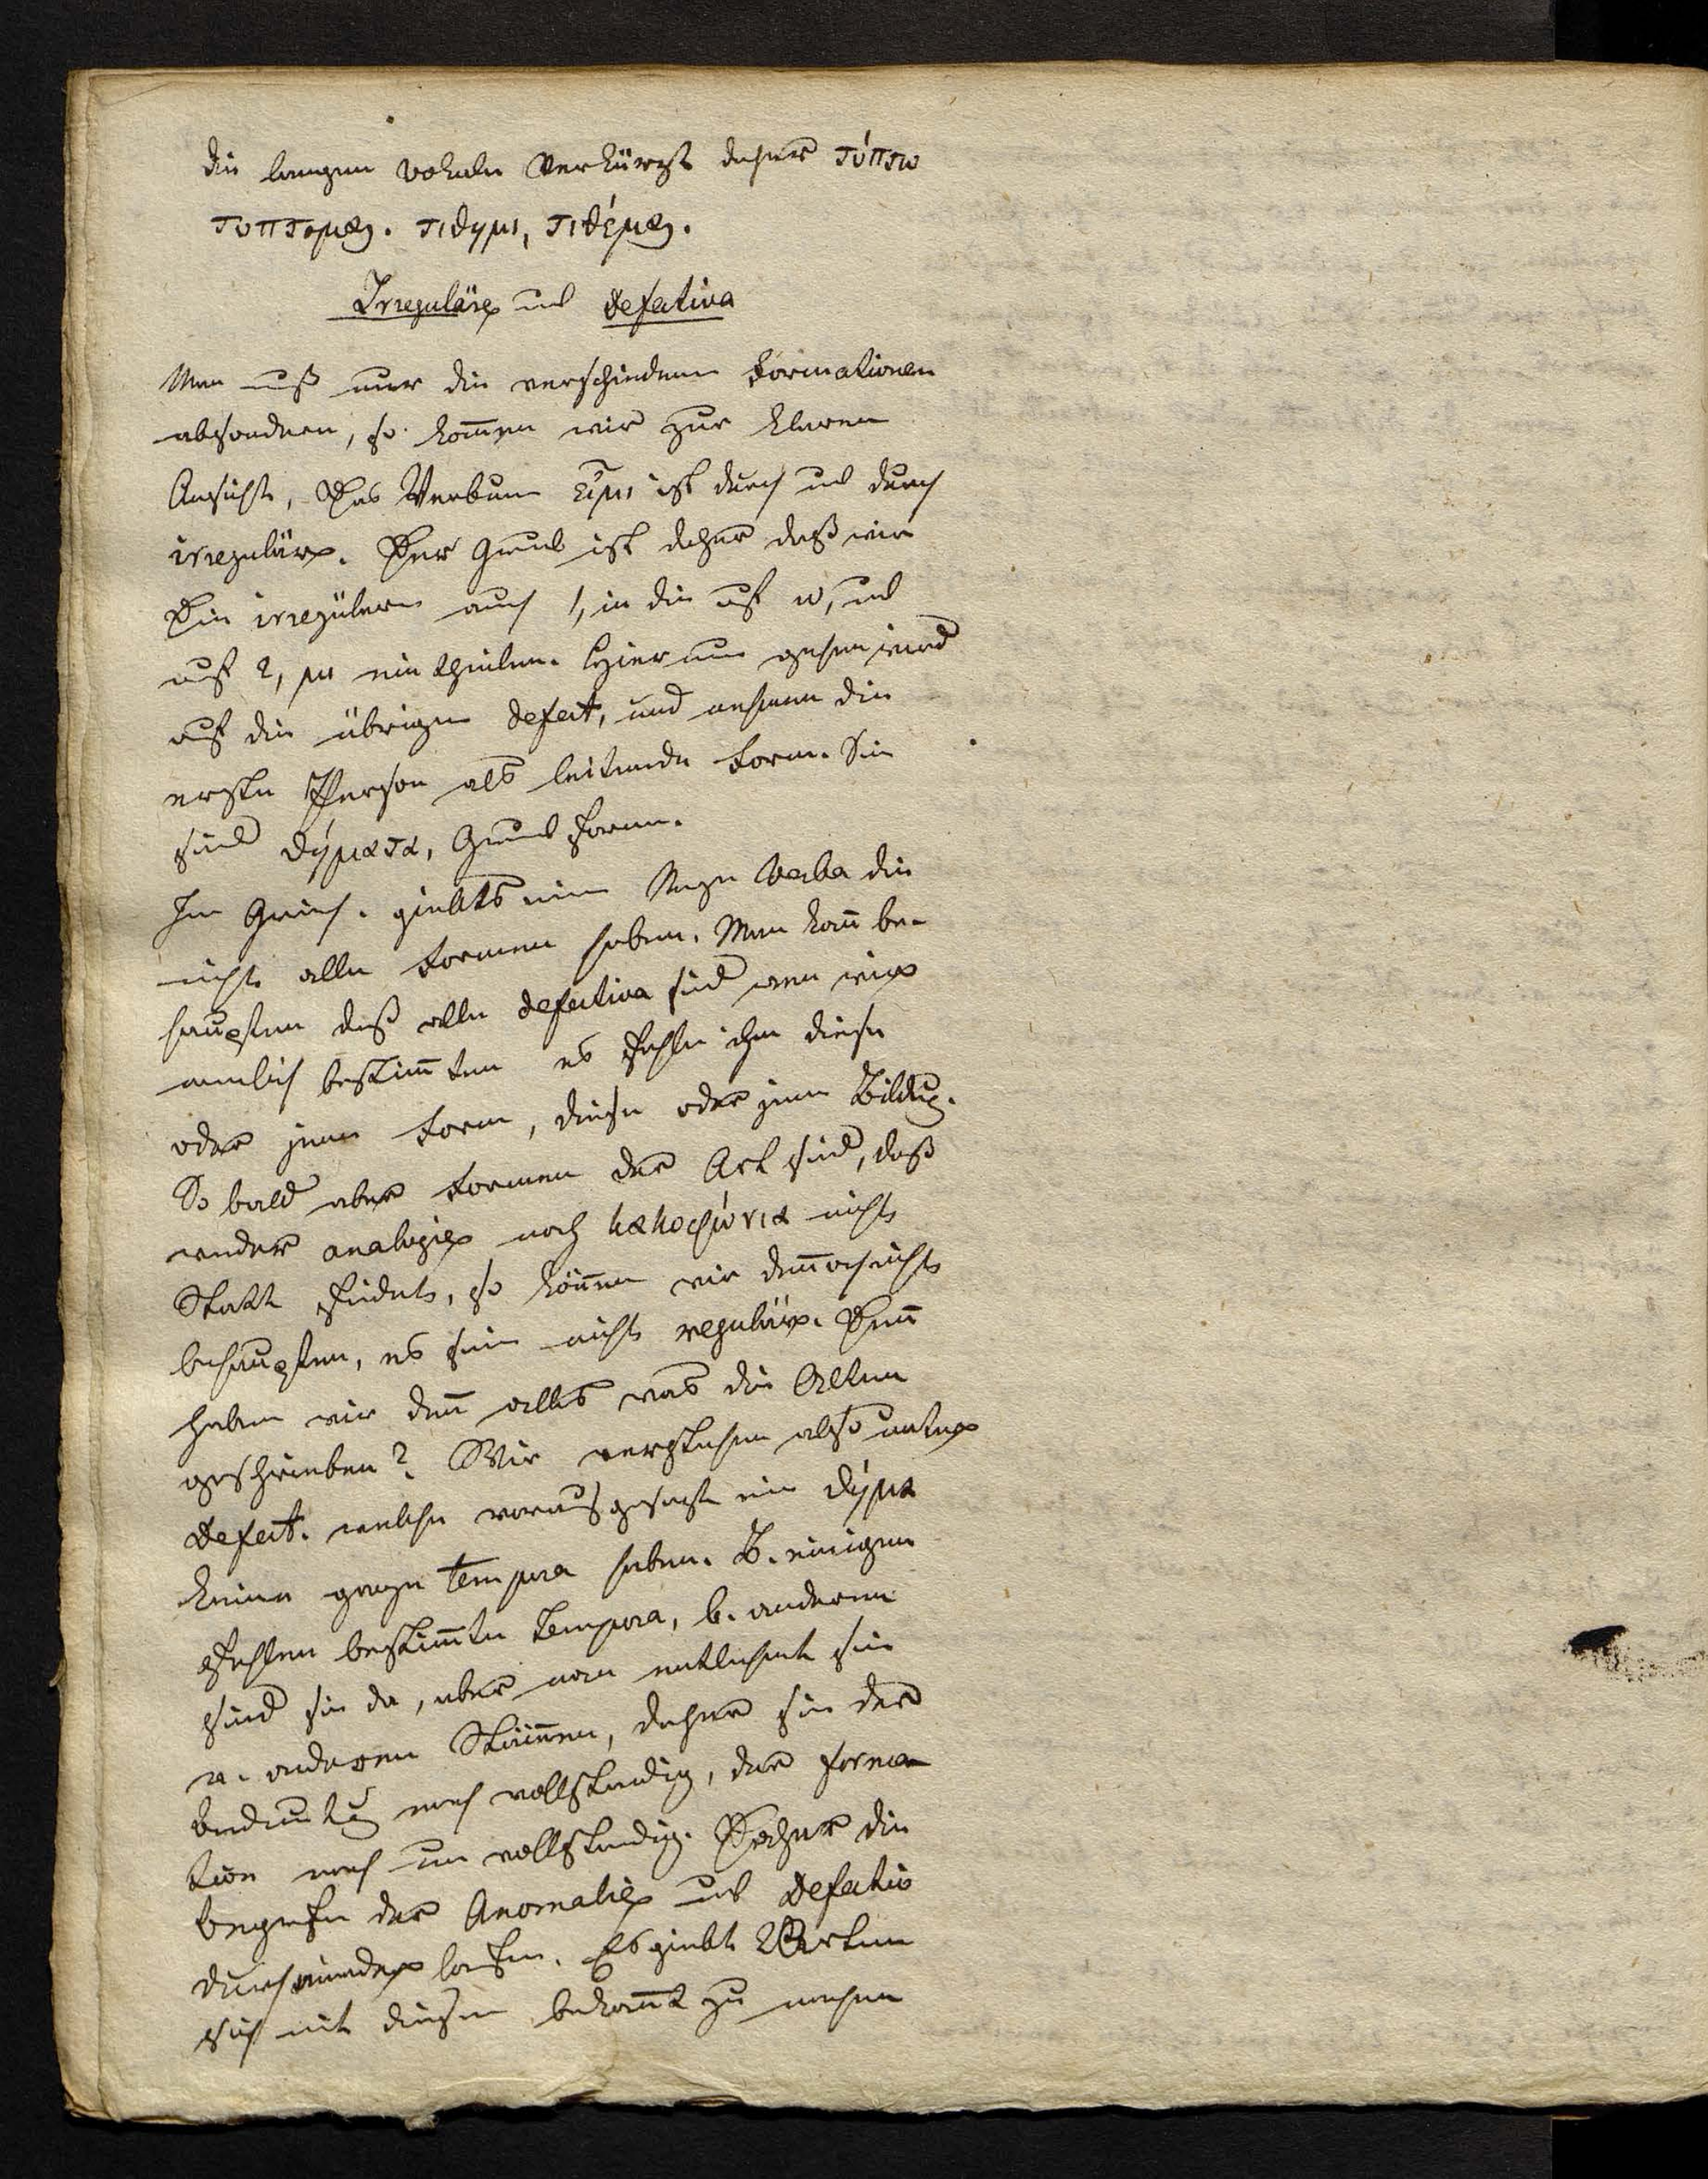 die langen Vokale verkürzt daher τύπτω
τυπτομαι. τιθημι, τιθέμαι.
Irreguläre und Defectiva
Man muß nur die verschiedenen Formationen
absondern, so kommen wir zur klaren
Ansicht, Das Verbum εἶμι ist durch und durch
irregulär. Der Grund ist daher daß wir
Die irregülären auch 1, in die auf ω, und
auf 2, μι eintheilen. Hierauf gehen wir
auf die übrigen Defect, und nehmen die
erste Person als leitende Form. Sie
sind θήματα, Grund Formen.
Im Griech. giebts eine Menge Verba die
nicht alle Formen haben. Man kann be-
haupten daß alle Defectiva sind wen wir
nemlich bestimmten es fehle ihm diese
oder jene Form, diese oder jene Bildung.
So bald aber Formen der Art sind, daß
weder Analogie noch κακοφώνια nicht
Statt findet, so können wir dennoch nicht
behaupten, es sein nicht regulär. Denn
haben wir denn alles was die Alten
geschrieben? Wir verstehen also unter
Defect. welche vorausgesetzt ein θήμα
keine ganze Tempora haben. B. einigen
fehlen bestimmte Tempora, b. anderen
sind sie da, aber man entlehnt sie
v. anderen Stämmen, daher sie der
Bedeutung nach vollständig, der Forma
tion nach unvollständig. Daher die
Begriffe der Anomalie und Defectiv
durcheinander laufen. Es giebt 2 Arten
sich mit diesen bekannt zu machen